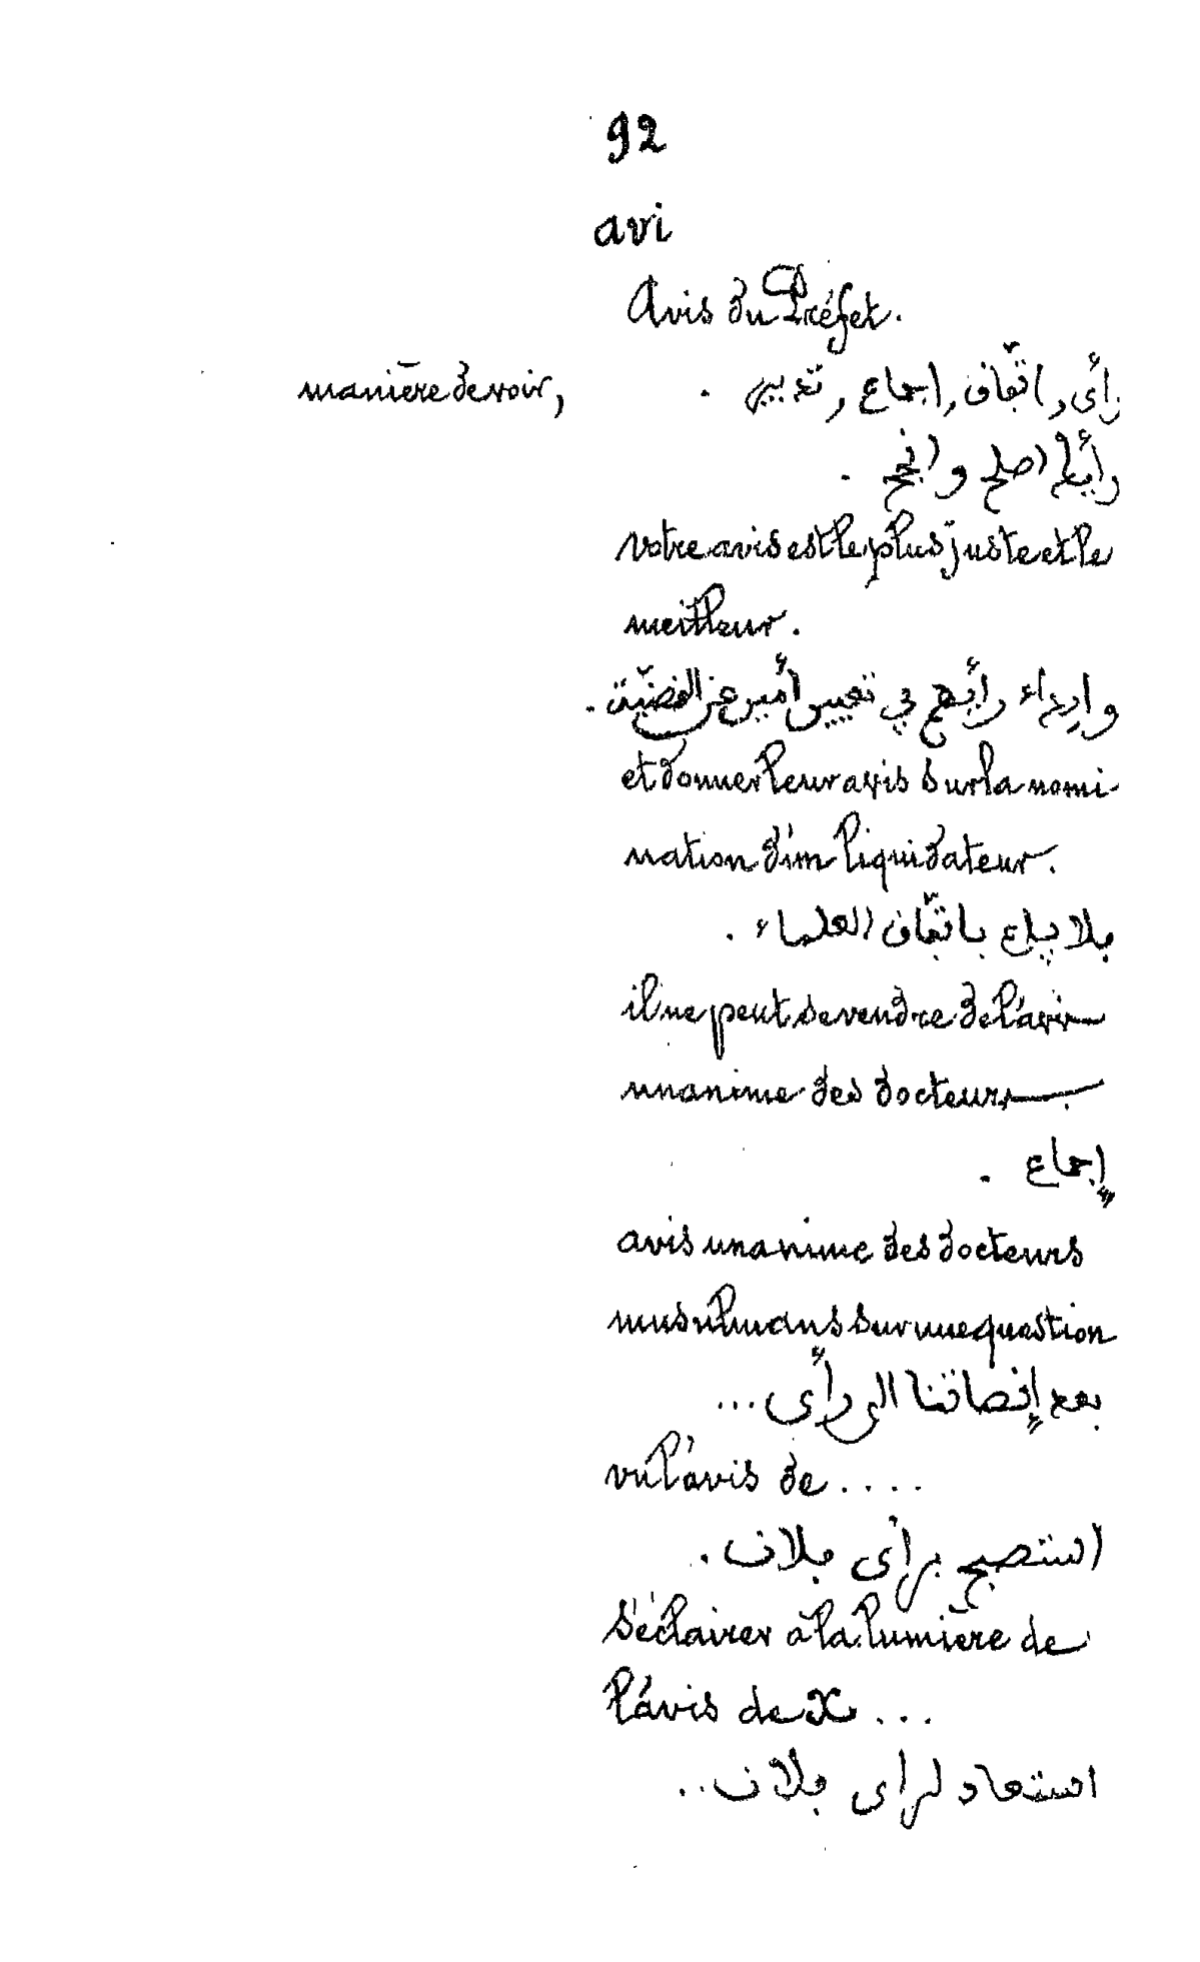 92
avi
Avis du Préfet.
manière de voir,
رأى, اتّفاف, اجماع, تدبير.
رأيكم اصلح وانجح.
votre avis est le plus juste et le
meilleur.
وابداء رأيهم في تعيين أمين عن القضيّة.
et donner leur avis sur la nomi-
nation d'un liquidateur.
ڢلا يباع باتّڢاف العلماء.
il ne peut se vendre de l'avis
unanime des docteurs
إجماع.
avis unanime des docteurs
musulmans sur une question
بعد إنصاتنا الى رأي...
vu l'avis de....
استصبح برأى ڢلان.
s'éclairer à la lumière de
l'avis de X...
استعاد لرأى ڢلان..